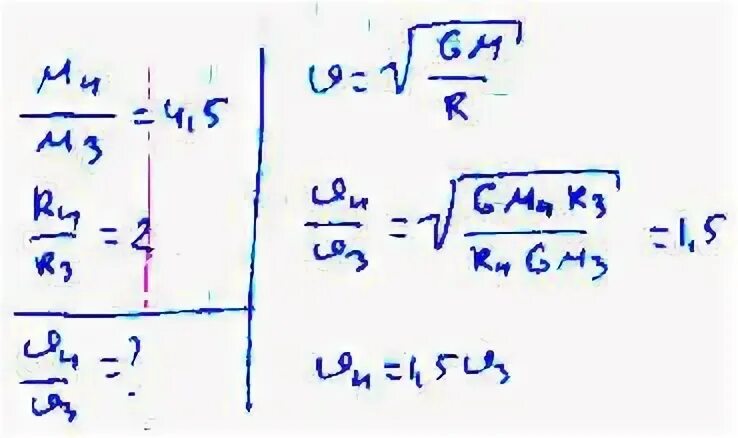 Mн/Mз = 4,5
Rн/Rз = 2
υн/υз = ?
υ = √(GM/R)
υн/υз = √(G Mн Rз / Rн G Mз) = 1,5
υн = 1,5 υз